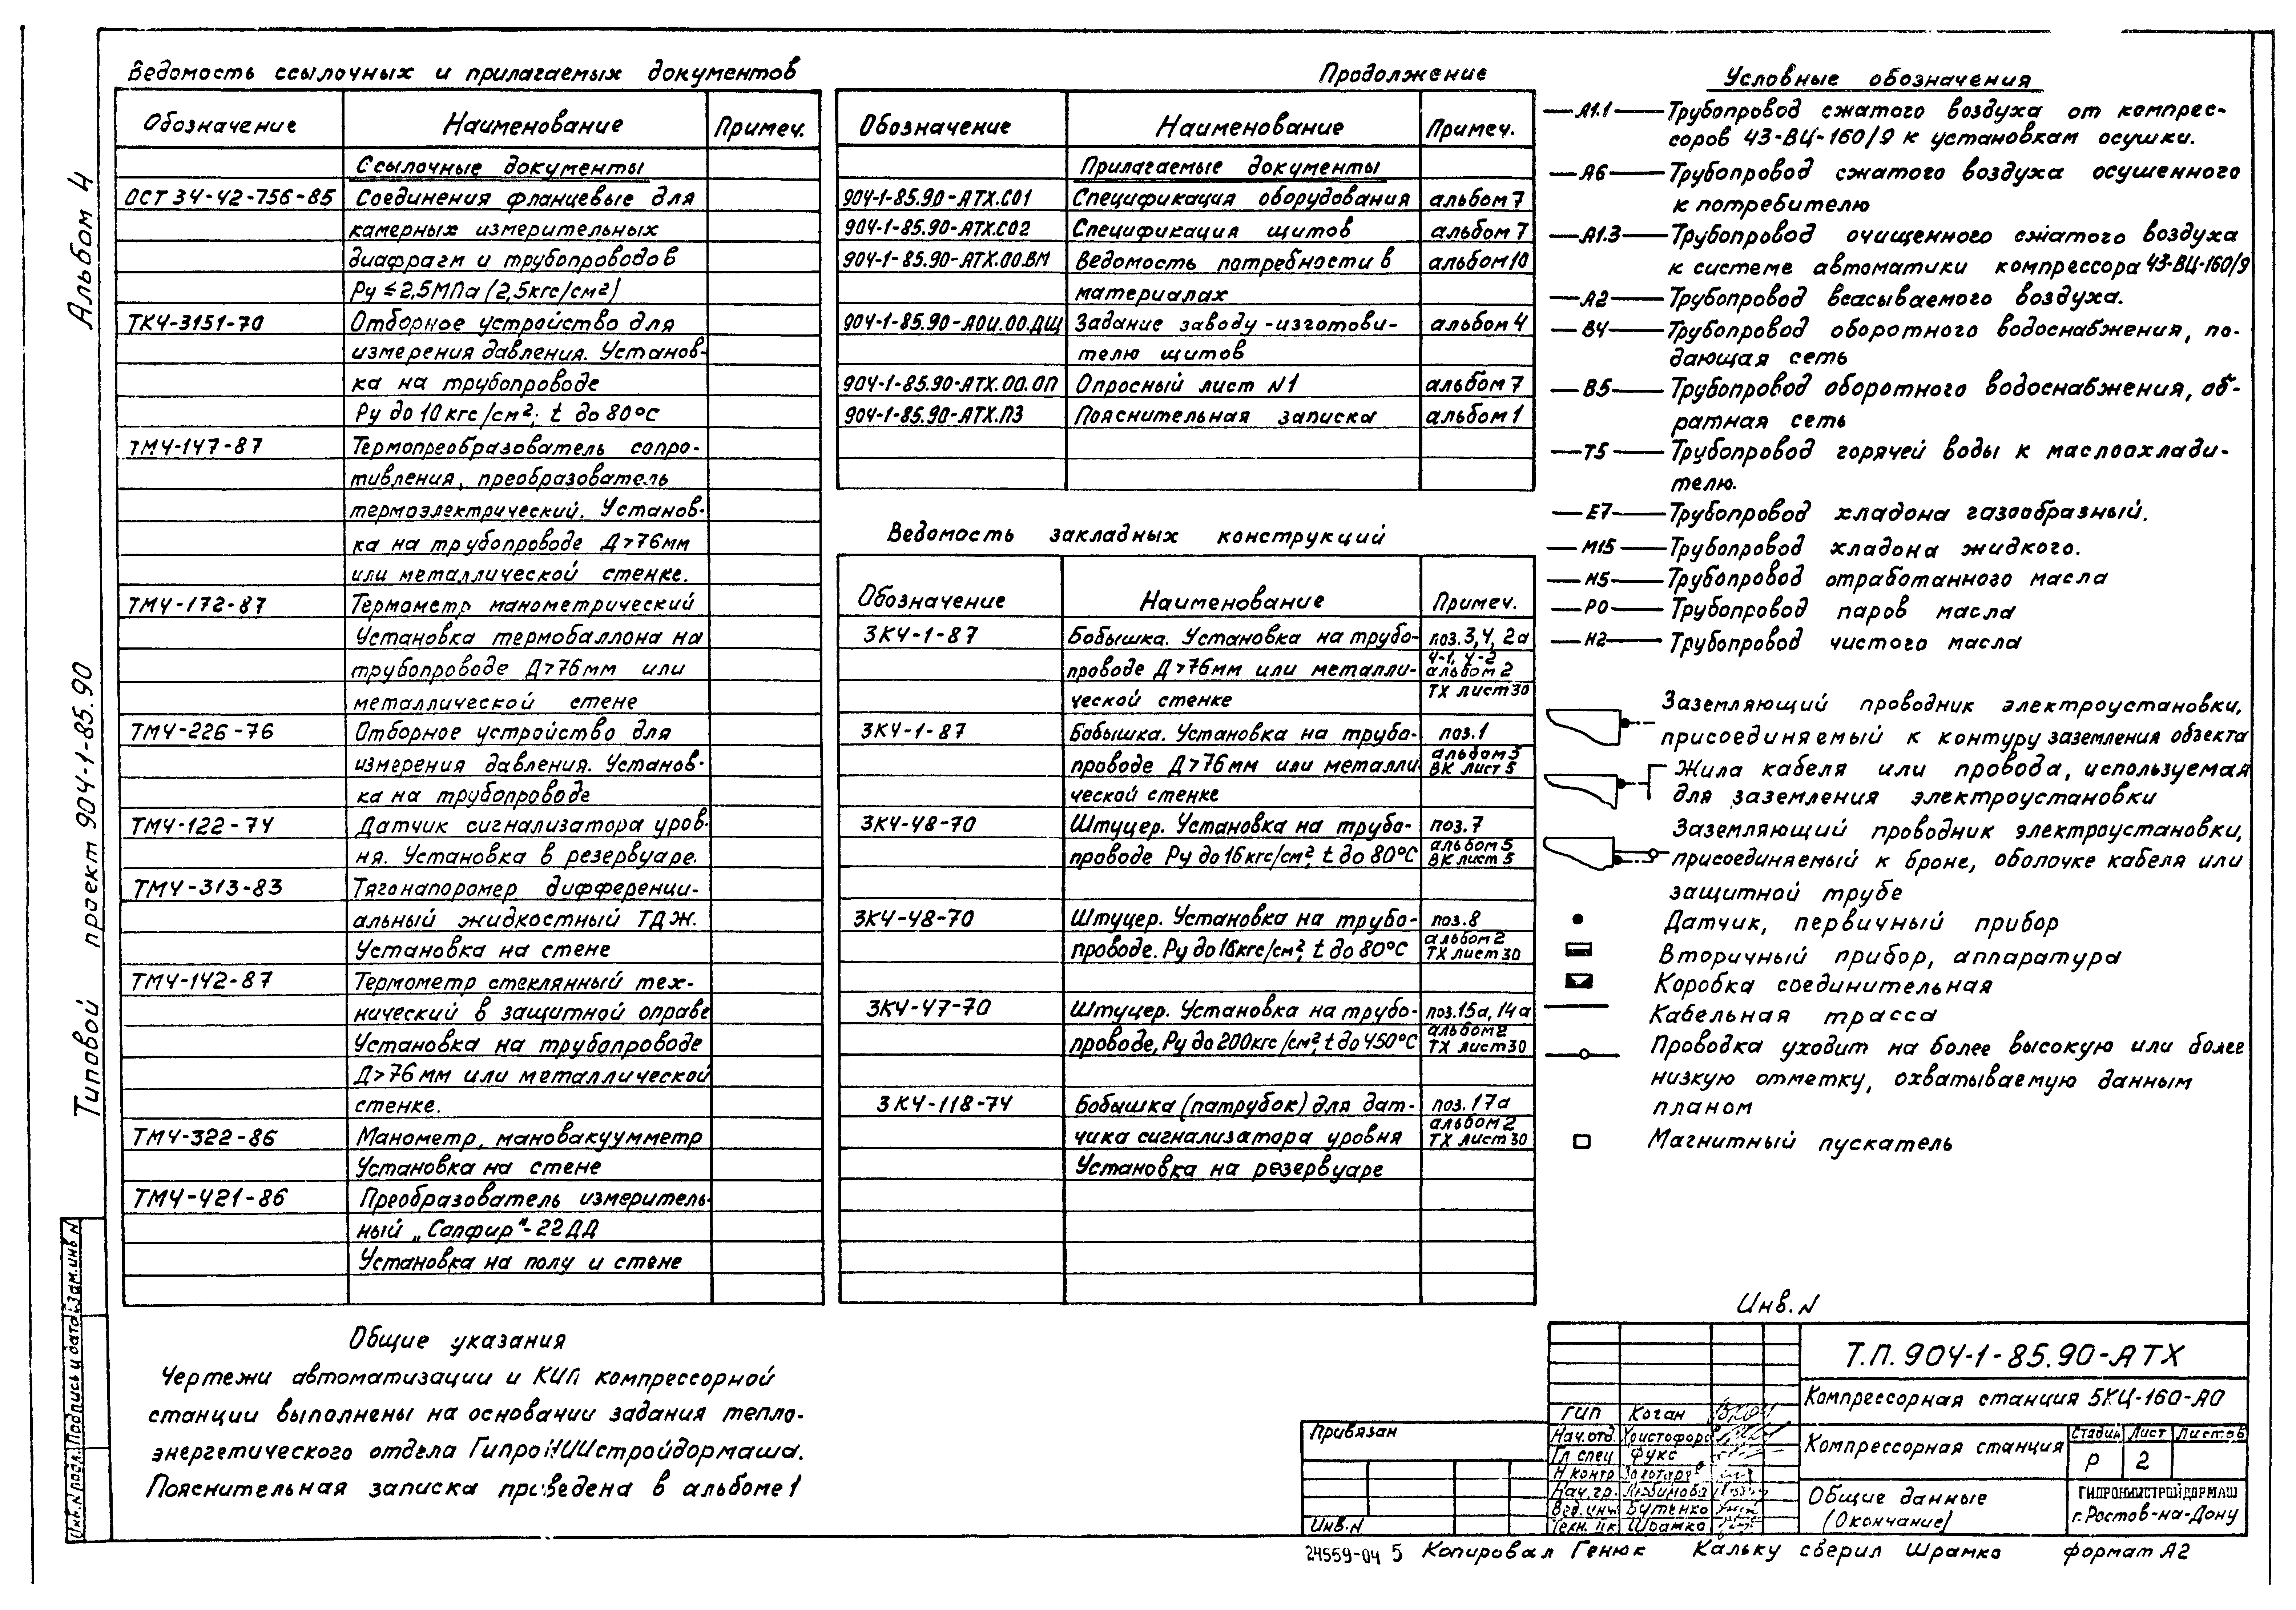 Альбом 4
Типовой проект 904-1-85.90
Инв.N подл. Подпись и дата Взам.инв N
Ведомость ссылочных и прилагаемых документов
Обозначение Наименование Примеч.
Ссылочные документы
ОСТ 34-42-756-85 Соединения фланцевые для
камерных измерительных
диафрагм и трубопроводов
Ру ≤ 2,5МПа (2,5кгс/см²)
ТКЧ-3151-70 Отборное устройство для
измерения давления. Установ-
ка на трубопроводе
Ру до 10 кгс/см²; t до 80°С
ТМЧ-147-87 Термопреобразователь сопро-
тивления, преобразователь
термоэлектрический. Установ-
ка на трубопроводе Д>76мм
или металлической стенке.
ТМЧ-172-87 Термометр манометрический
Установка термобаллона на
трубопроводе Д>76мм или
металлической стене
ТМЧ-226-76 Отборное устройство для
измерения давления. Установ-
ка на трубопроводе
ТМЧ-122-74 Датчик сигнализатора уров-
ня. Установка в резервуаре.
ТМЧ-313-83 Тягонапоромер дифференци-
альный жидкостный ТДЖ.
Установка на стене
ТМЧ-142-87 Термометр стеклянный тех-
нический в защитной оправе
Установка на трубопроводе
Д>76мм или металлической
стенке.
ТМЧ-322-86 Манометр, мановакуумметр
Установка на стене
ТМЧ-421-86 Преобразователь измеритель-
ный „Сапфир"-22ДД
Установка на полу и стене
Общие указания
Чертежи автоматизации и КИП компрессорной
станции выполнены на основании задания тепло-
энергетического отдела ГипроНИИстройдормаша.
Пояснительная записка приведена в альбоме 1
Продолжение
Обозначение Наименование Примеч.
Прилагаемые документы
904-1-85.90-АТХ.С01 Спецификация оборудования альбом 7
904-1-85.90-АТХ.С02 Спецификация щитов альбом 7
904-1-85.90-АТХ.00.ВМ Ведомость потребности в альбом 10
материалах
904-1-85.90-АОИ.00.ДЩ Задание заводу-изготови- альбом 4
телю щитов
904-1-85.90-АТХ.00.ОЛ Опросный лист N1 альбом 7
904-1-85.90-АТХ.ПЗ Пояснительная записка альбом 1
Ведомость закладных конструкций
Обозначение Наименование Примеч.
ЗКЧ-1-87 Бобышка. Установка на трубо- поз. 3, 4, 2а
4-1, 4-2
проводе Д>76мм или металли- альбом 2
ческой стенке ТХ лист 30
ЗКЧ-1-87 Бобышка. Установка на трубо- поз.1
альбом 5
проводе Д>76мм или металли ВК лист 5
ческой стенке
ЗКЧ-48-70 Штуцер. Установка на трубо- поз.7
альбом 5
проводе Ру до 16кгс/см², t до 80°С ВК лист 5
ЗКЧ-48-70 Штуцер. Установка на трубо- поз.8
альбом 2
проводе. Ру до 16кгс/см², t до 80°С ТХ лист 30
ЗКЧ-47-70 Штуцер. Установка на трубо- поз.15а, 14а
альбом 2
проводе, Ру до 200кгс/см², t до 450°С ТХ лист 30
ЗКЧ-118-74 Бобышка (патрубок) для дат- поз. 17а
альбом 2
чика сигнализатора уровня ТХ лист 30
Установка на резервуаре
Условные обозначения
А1.1 Трубопровод сжатого воздуха от компрес-
соров 43-ВЦ-160/9 к установкам осушки.
А6 Трубопровод сжатого воздуха осушенного
к потребителю
А1.3 Трубопровод очищенного сжатого воздуха
к системе автоматики компрессора 43-ВЦ-160/9
А2 Трубопровод всасываемого воздуха.
В4 Трубопровод оборотного водоснабжения, по-
дающая сеть
В5 Трубопровод оборотного водоснабжения, об-
ратная сеть
Т5 Трубопровод горячей воды к маслоохлади-
телю.
Е7 Трубопровод хладона газообразный.
М15 Трубопровод хладона жидкого.
Н5 Трубопровод отработанного масла
РО Трубопровод паров масла
Н2 Трубопровод чистого масла
Заземляющий проводник электроустановки,
присоединяемый к контуру заземления объекта
Жила кабеля или провода, используемая
для заземления электроустановки
Заземляющий проводник электроустановки,
присоединяемый к броне, оболочке кабеля или
защитной трубе
Датчик, первичный прибор
Вторичный прибор, аппаратура
Коробка соединительная
Кабельная трасса
Проводка уходит на более высокую или более
низкую отметку, охватываемую данным
планом
Магнитный пускатель
Инв. N
Т.П. 904-1-85.90-АТХ
Компрессорная станция 5КЦ-160-АО
ГИП Коган
Нач.отд. Христофоров
Гл спец Фукс
Н контр
Нач.гр. Любимова
Вед.инж Бутенко
Шрамко
Компрессорная станция
Стадия Лист Листов
Р 2
Общие данные
(Окончание)
ГИПРОНИИСТРОЙДОРМАШ
г.Ростов-на-Дону
Привязан
Инв.N
24559-04 5 Копировал Генюк Кальку сверил Шрамко формат А2